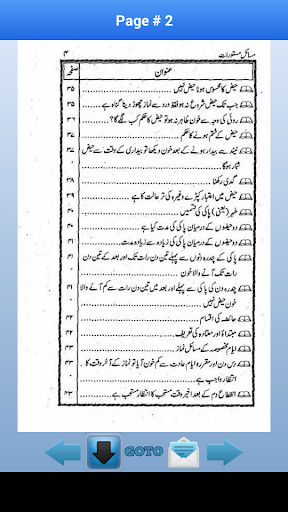 Page # 2
مسائل مستورات ۴
عنوان صفحہ
حیض کا محسوس ہونا حیض نہیں ۳۵
جب تک حیض شروع نہ ہو فقط درد سے نماز چھوڑ دینا گناہ ہے ۳۵
روئی کی وجہ سے خون ظاہر نہ ہو تو حیض کا حکم کب سے لگے گا ۳۶
حیض کے ختم ہونے کا حکم ۳۷
نیند سے بیدار ہونے کے بعد خون دیکھا تو بیداری کے وقت سے حیض ۳۷
شمار ہوگا
گدی رکھنا ۳۸
حیض میں اعتبار کپڑے وغیرہ کی تر حالت کا ہے ۳۹
طہر (یعنی) پاکی کی قسمیں ۴۰
دو حیضوں کے درمیان پاکی کی مدت کیا ہے ۴۰
دو حیضوں کے درمیان پاکی کی زیادہ سے زیادہ مدت
پاکی کے پندرہ دنوں سے پہلے تین دن رات تک اور بعد کے تین دن
رات تک آنے والا خون
پندرہ دن کی پاکی سے پہلے اور بعد میں تین دن رات سے کم آنے والا
خون حیض نہیں
حائضہ کی اقسام ۴۲
مبتداۃ اور معتادہ کی تعریف ۴۲
ایام مخصوصہ کے مسائل نماز ۴۳
دس دن اور مقررہ ایام عادت سے کم خون آیا تو نماز کے آخر وقت کا ۴۳
انتظار واجب ہے
انقطاع دم کے بعد اخیر وقت مستحب کا انتظار مستحب ہے ۴۳
GOTO